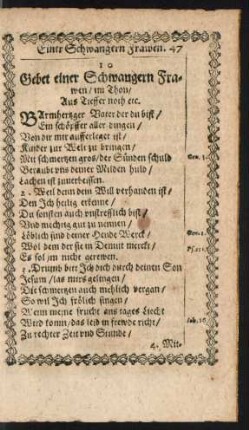 Einer Schwangern Frawen. 47
10
Gebet einer Schwangern Fra-
wen / im Thon /
Aus Tieffer noth etc.
BArmhertzger Vater der du bist /
Ein schöpffer aller dingen /
Von dir mir aufferleget ist
Kinder zur Welt zu bringen /
Mit schmertzen gros / der Sünden schuld
Beraubt vns deiner Milden huld /
Lachen ist zuuerbeissen.
2. Weil denn dein Will verhanden ist /
Den Ich heilig erkenne /
Du sonsten auch vntrefflich bist /
Vnd mechtig gut zu nennen /
Löblich sind deiner Hende Werck
Wol dem der sie in Demut merckt /
Es sol jm nicht gerewen.
3. Drumb bitt Ich dich durch deinen Son
Jesum / las mirs gelingen /
Die schmertzen auch mehlich vergan /
So wil Ich frölich singen /
Wenn meine frucht ans tages liecht
Wird komn / das leid in frewde richt /
Zu rechter Zeit vnd Stunde /
4. Mit-